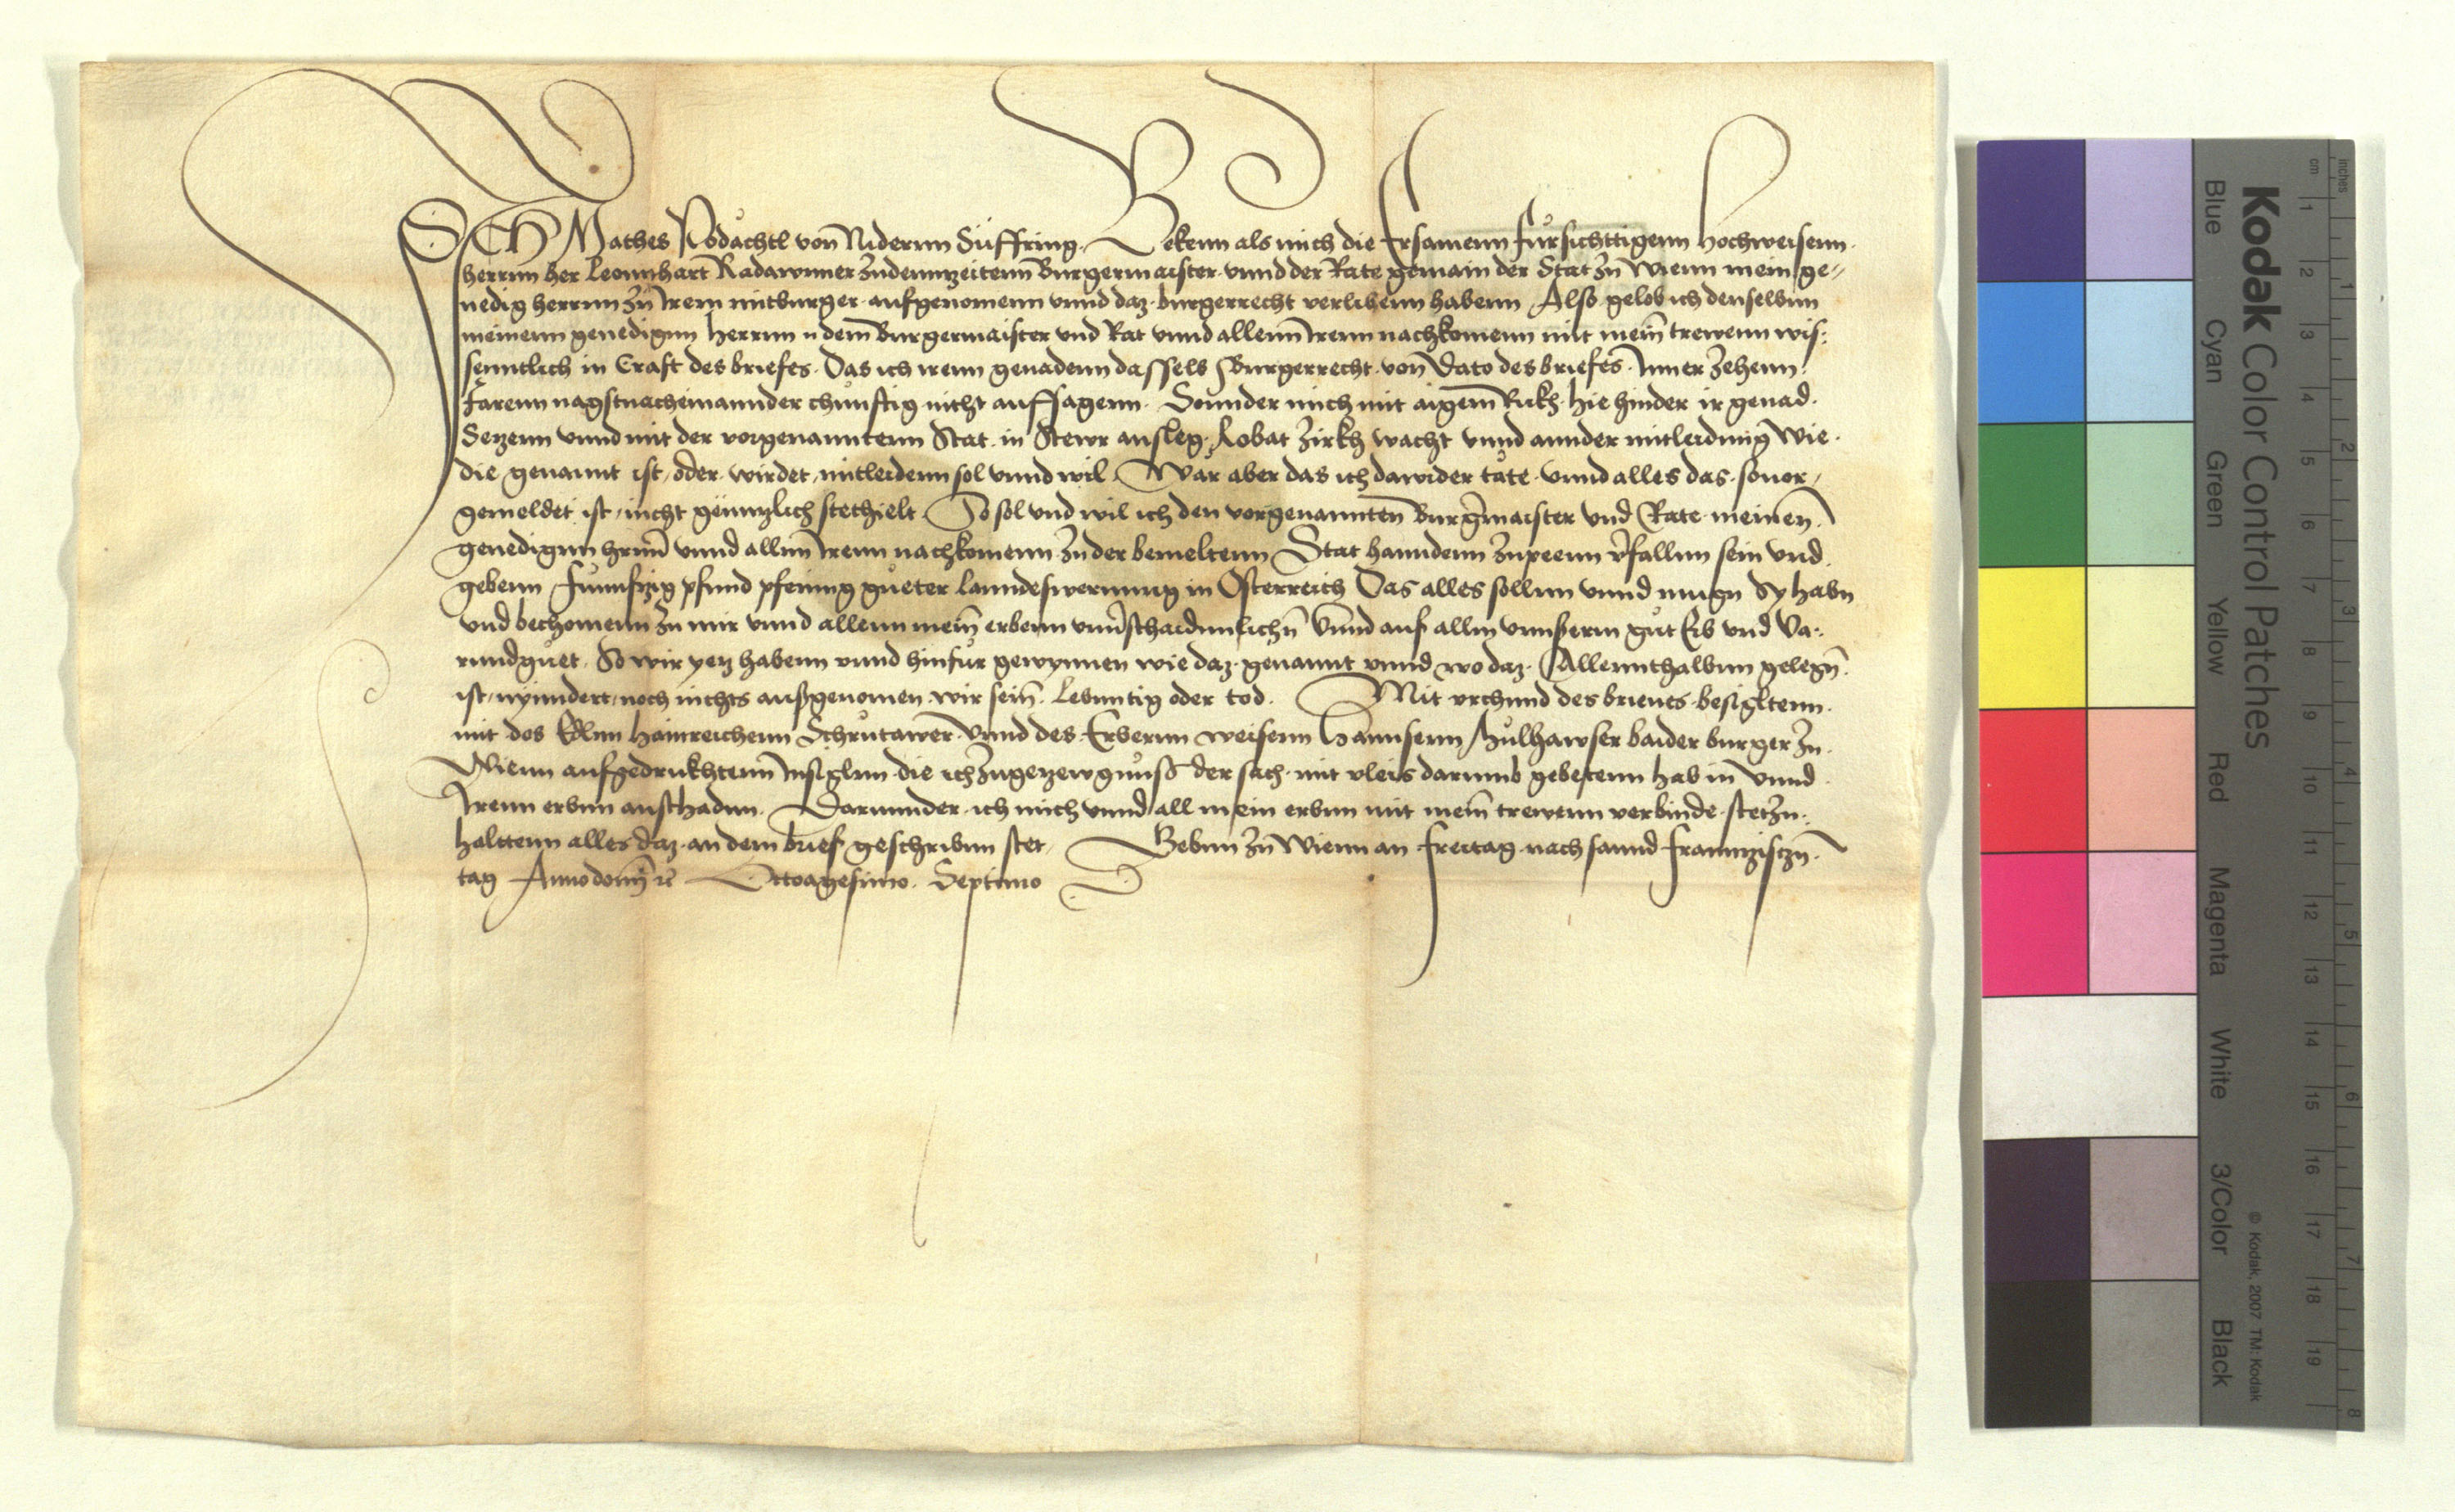 ICH Mathes Rodachtl von Nidernn Süffring. Bekenn als mich die Ersamenn fürsichttigenn hochweisenn.
herrnn her Leonnhart Radawnner zudennzeitenn Burgermaister vnnd der Rate gemain der Stat zu Wienn mein ge-
nedig herrnn zu Irem mitburger aufgenomenn vnnd daz burgerrecht verlihenn habenn Also gelob ich denselbnn
meinenn genedignn herrnn n dem Burgermaister vnd Rat vnnd allenn Irenn nachkomenn mit mein trewenn wis-
senntlich in Craft des briefes. Das ich irenn genadenn dasselb Burgerrecht von Dato des briefes Inner zehenn
Jarenn nagstnacheinannder chünftig nicht aufsagenn. Sonnder mich mit aigem Rukh hie hinder ir genad.
Setzenn vnnd mit der vorgenanntenn Stat in Stewr ansleg Robat zirkh wacht vnnd annder mitleidung wie
die genannt ist oder wirdet mitleidenn sol vnnd wil. Wär aber das ich dawider täte vnnd alles das souor
gemeldet ist nicht gänntzlich stethielt. So sol vnd wil ich den vorgenannten Burgermaister vnd Rate meinen
genedignn hrnn vnnd allnn Irenn nachkomenn zu der bemeltenn Stat hanndenn zupeenn verfallnn sein vnd
gebenn Fünnfzig pfund pfening güeter lanndeswerunng in Österreich Das alles sollnn vnnd mugn Sy habn
vnd bechomenn zu mir vnnd allenn mein erbenn vnuerschaidennlichn Vnnd auf allm vnnserm gut Erb vnd Va-
runndguet. So wir yetz habenn vnnd hinfür gewynnen wie daz genannt vnnd wo daz Allennthalbnn gelegn
ist nynndert noch nichts aussgenomen wir sein. Lebenntig oder tod. Mit vrchund des brieues besigltenn
mit des Edlnn hainreichenn Schrutawer Vnnd des Erbernn weisenn Hannsenn Hülhawser baider burger zu
Wienn aufgedrukhtenn Insiglnn die ich zugetzewgnüss der sach mit vleis darumb gebetenn hab in vnnd
Irenn erbnn anschadnn. Darunnder ich mich vnnd all mein erbnn mit mein trewenn verbinde stetzu
halttenn alles daz an dem brief geschribnn stet Gebnn zu Wienn an freitag nach sannd franntziscn
tag Anno domini rc Octoagesimo Septimo
Kodak Color Control Patches
Blue Cyan Green Yellow Red Magenta White 3/Color Black
© Kodak, 2007 TM: Kodak
cm 1 2 3 4 5 6 7 8 9 10 11 12 13 14 15 16 17 18 19
inches 1 2 3 4 5 6 7 8